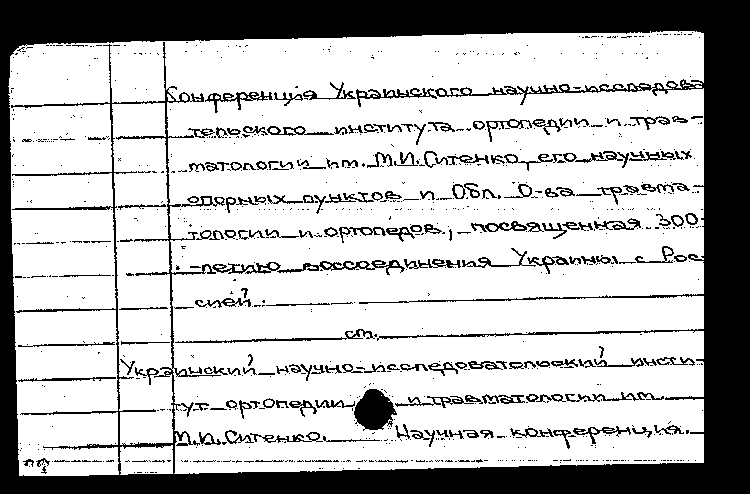 Конференция Украинского научно-исследова
тельского института ортопедии и трав-
матологии им. М.И.Ситенко, его научных
опорных пунктов и Обл. О-ва травма-
тологии и ортопедов, посвященная 300-
-летию воссоединения Украины с Рос
сией.
см.
Украинский научно-исследовательский инсти-
тут ортопедии и травматологии им.
М.И.Ситенко. Научная конференция.